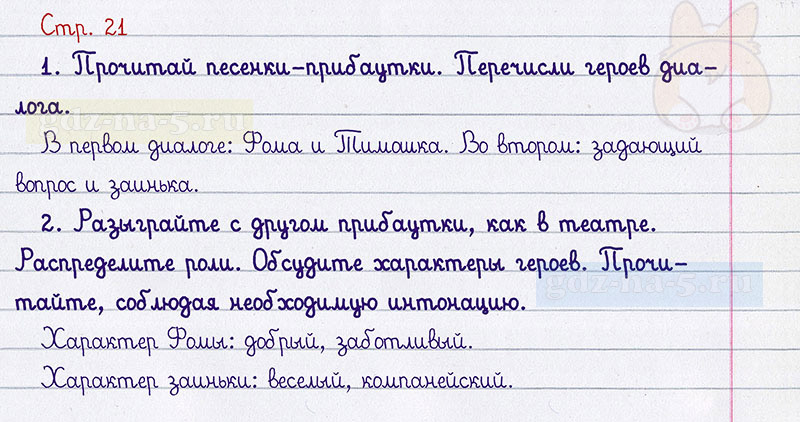 Стр. 21
1. Прочитай песенки-прибаутки. Перечисли героев диа-
лога.
gdz-na-5.ru
В первом диалоге: Фома и Тимашка. Во втором: задающий
вопрос и заинька.
2. Разыграйте с другом прибаутки, как в театре.
Распределите роли. Обсудите характеры героев. Прочи-
тайте, соблюдая необходимую интонацию.
gdz-na-5.ru
Характер Фомы: добрый, заботливый.
Характер заиньки: веселый, компанейский.